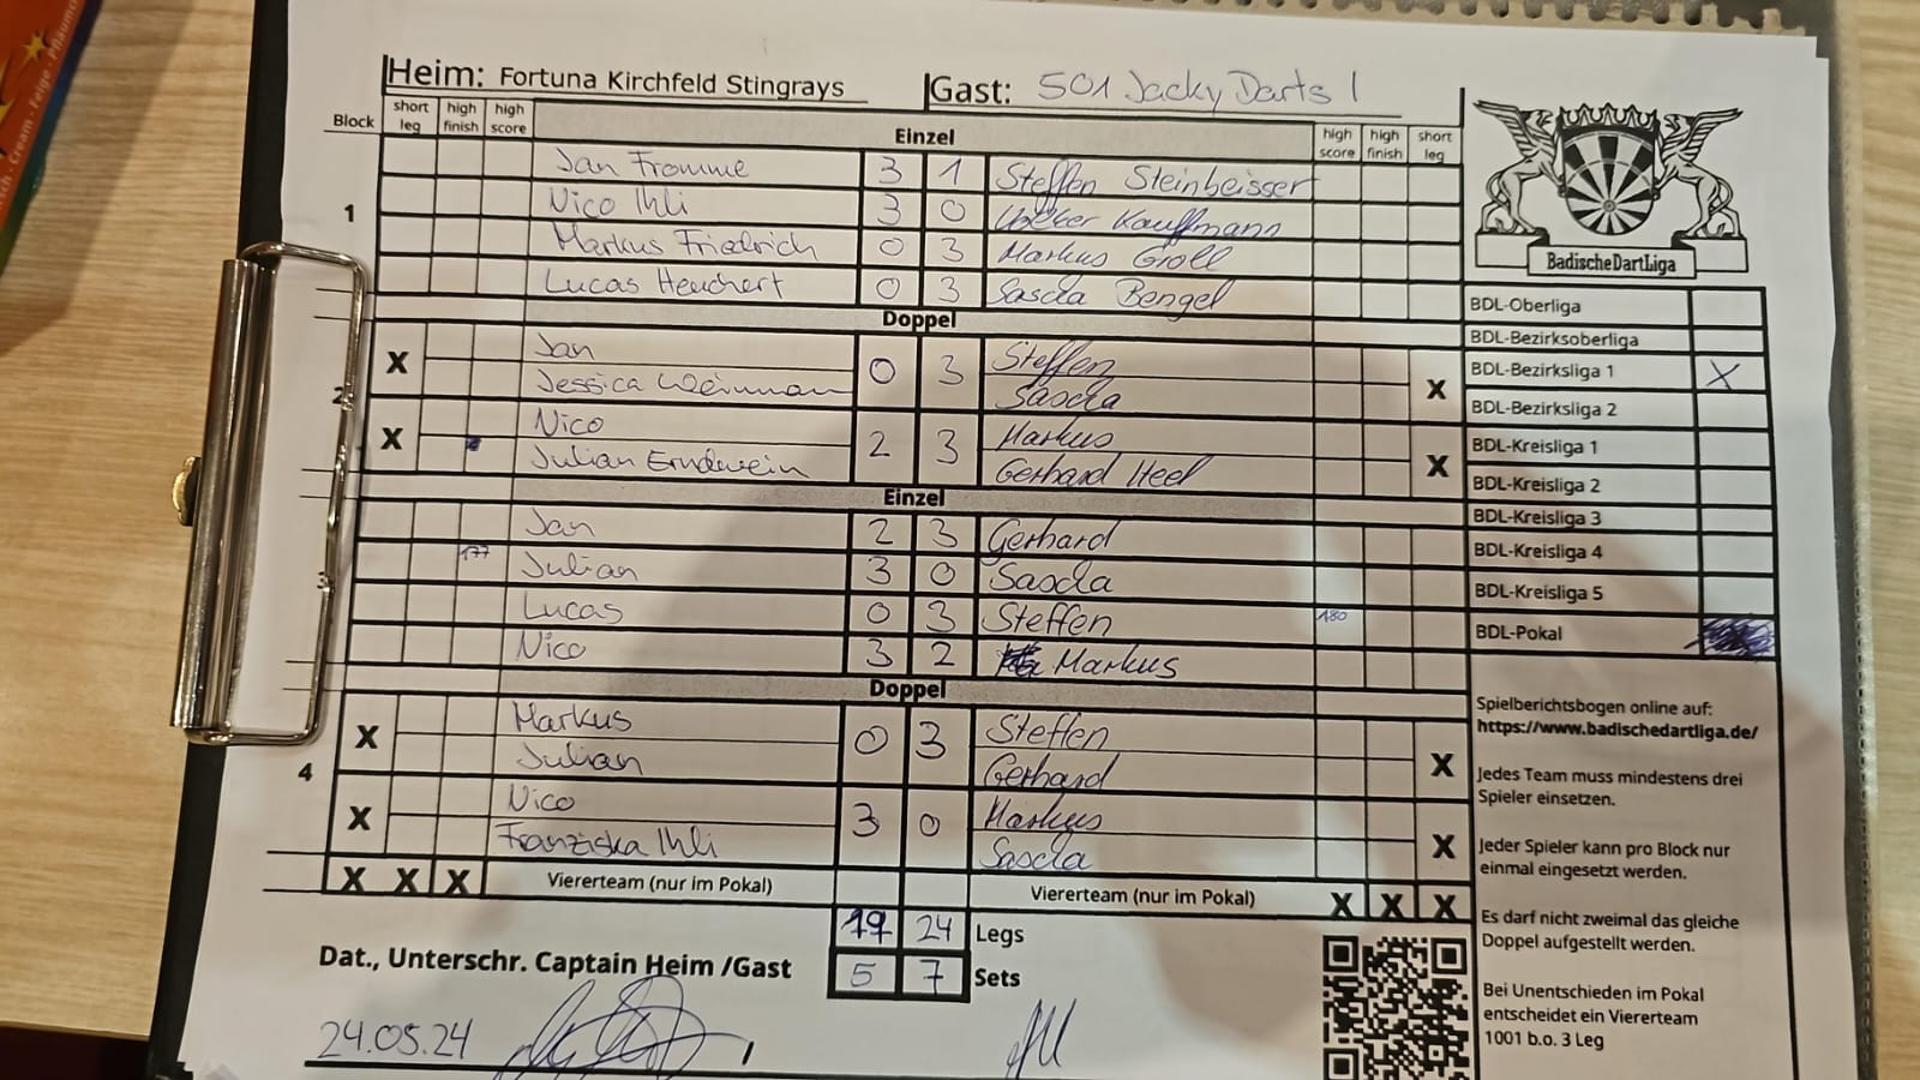 Heim: Fortuna Kirchfeld Stingrays Gast: 501 Jacky Darts 1
Block short leg high finish high score Einzel high score high finish short leg
Jan Fromme 3 1 Steffen Steinbeisser
1 Nico Ihli 3 0 Volker Kauffmann
Markus Friedrich 0 3 Markus Groll
Lucas Heuchert 0 3 Sascha Bengel
Doppel
X Jan 0 3 Steffen X
Jessica Sascha
2
X Nico 2 3 Markus X
Julian Erndwein Gerhard Heel
Einzel
Jan 2 3 Gerhard
177 Julian 3 0 Sascha
3
Lucas 0 3 Steffen 180
Nico 3 2 Markus
Doppel
X Markus 0 3 Steffen X
Julian Gerhard
4
X Nico 3 0 Markus X
Franziska Ihli Sascha
X X X Viererteam (nur im Pokal) Viererteam (nur im Pokal) X X X
19 24 Legs
5 7 Sets
Dat., Unterschr. Captain Heim /Gast
24.05.24
BadischeDartLiga
BDL-Oberliga
BDL-Bezirksoberliga
BDL-Bezirksliga 1 X
BDL-Bezirksliga 2
BDL-Kreisliga 1
BDL-Kreisliga 2
BDL-Kreisliga 3
BDL-Kreisliga 4
BDL-Kreisliga 5
BDL-Pokal
Spielberichtsbogen online auf:
https://www.badischedartliga.de/
Jedes Team muss mindestens drei
Spieler einsetzen.
Jeder Spieler kann pro Block nur
einmal eingesetzt werden.
Es darf nicht zweimal das gleiche
Doppel aufgestellt werden.
Bei Unentschieden im Pokal
entscheidet ein Viererteam
1001 b.o. 3 Leg